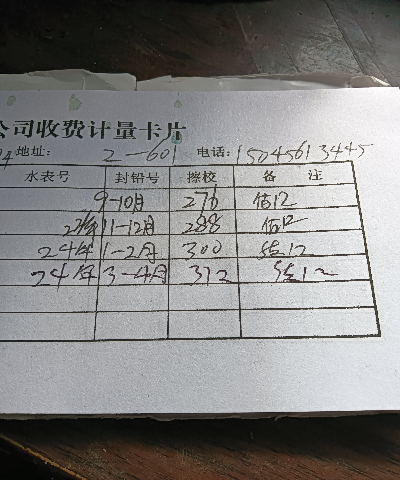 公司收费计量卡片
地址: 2-601 电话: 15045613445
水表号 封铅号 擦校 备注
9-10月 276 估12
23年 11-12月 288 估12
24年 1-2月 300 估12
24年 3-4月 312 估12